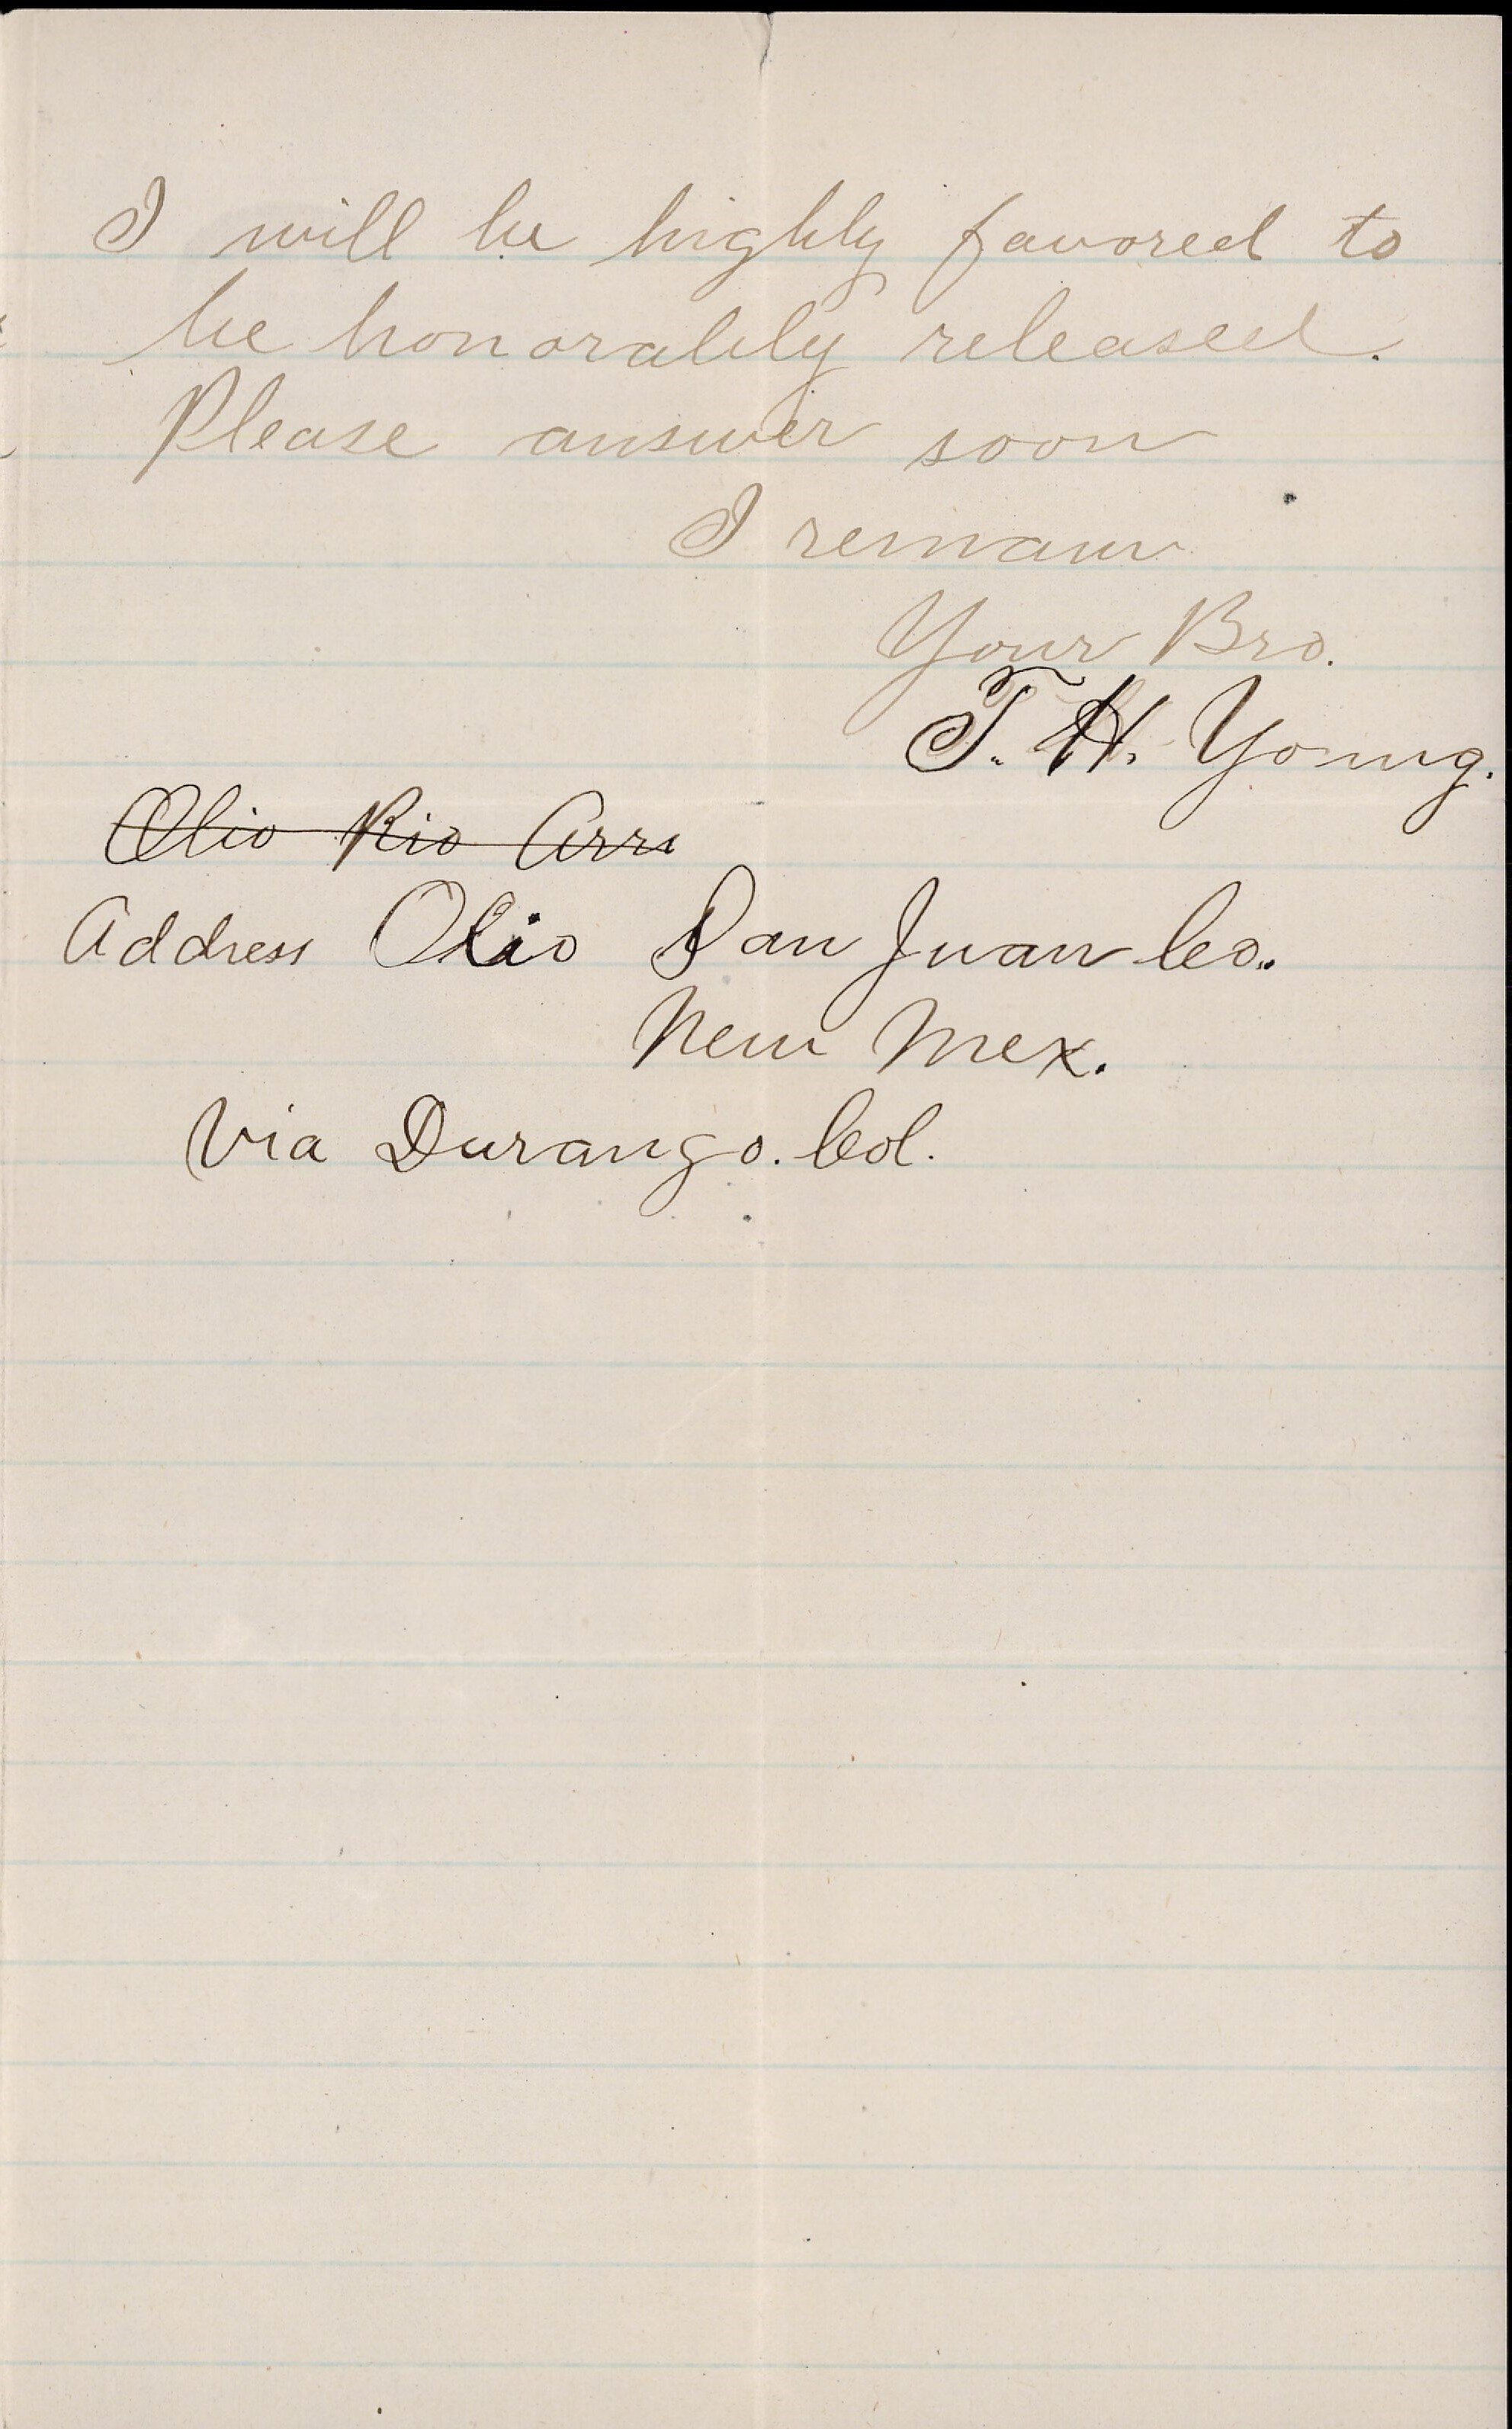 I will be highly favored to
be honorably released.
Please answer soon
I remain
Your Bro.
T. H. Young.
Olio Rio Arri
Address Olio San Juan Co.
New Mex.
Via Durango. Col.